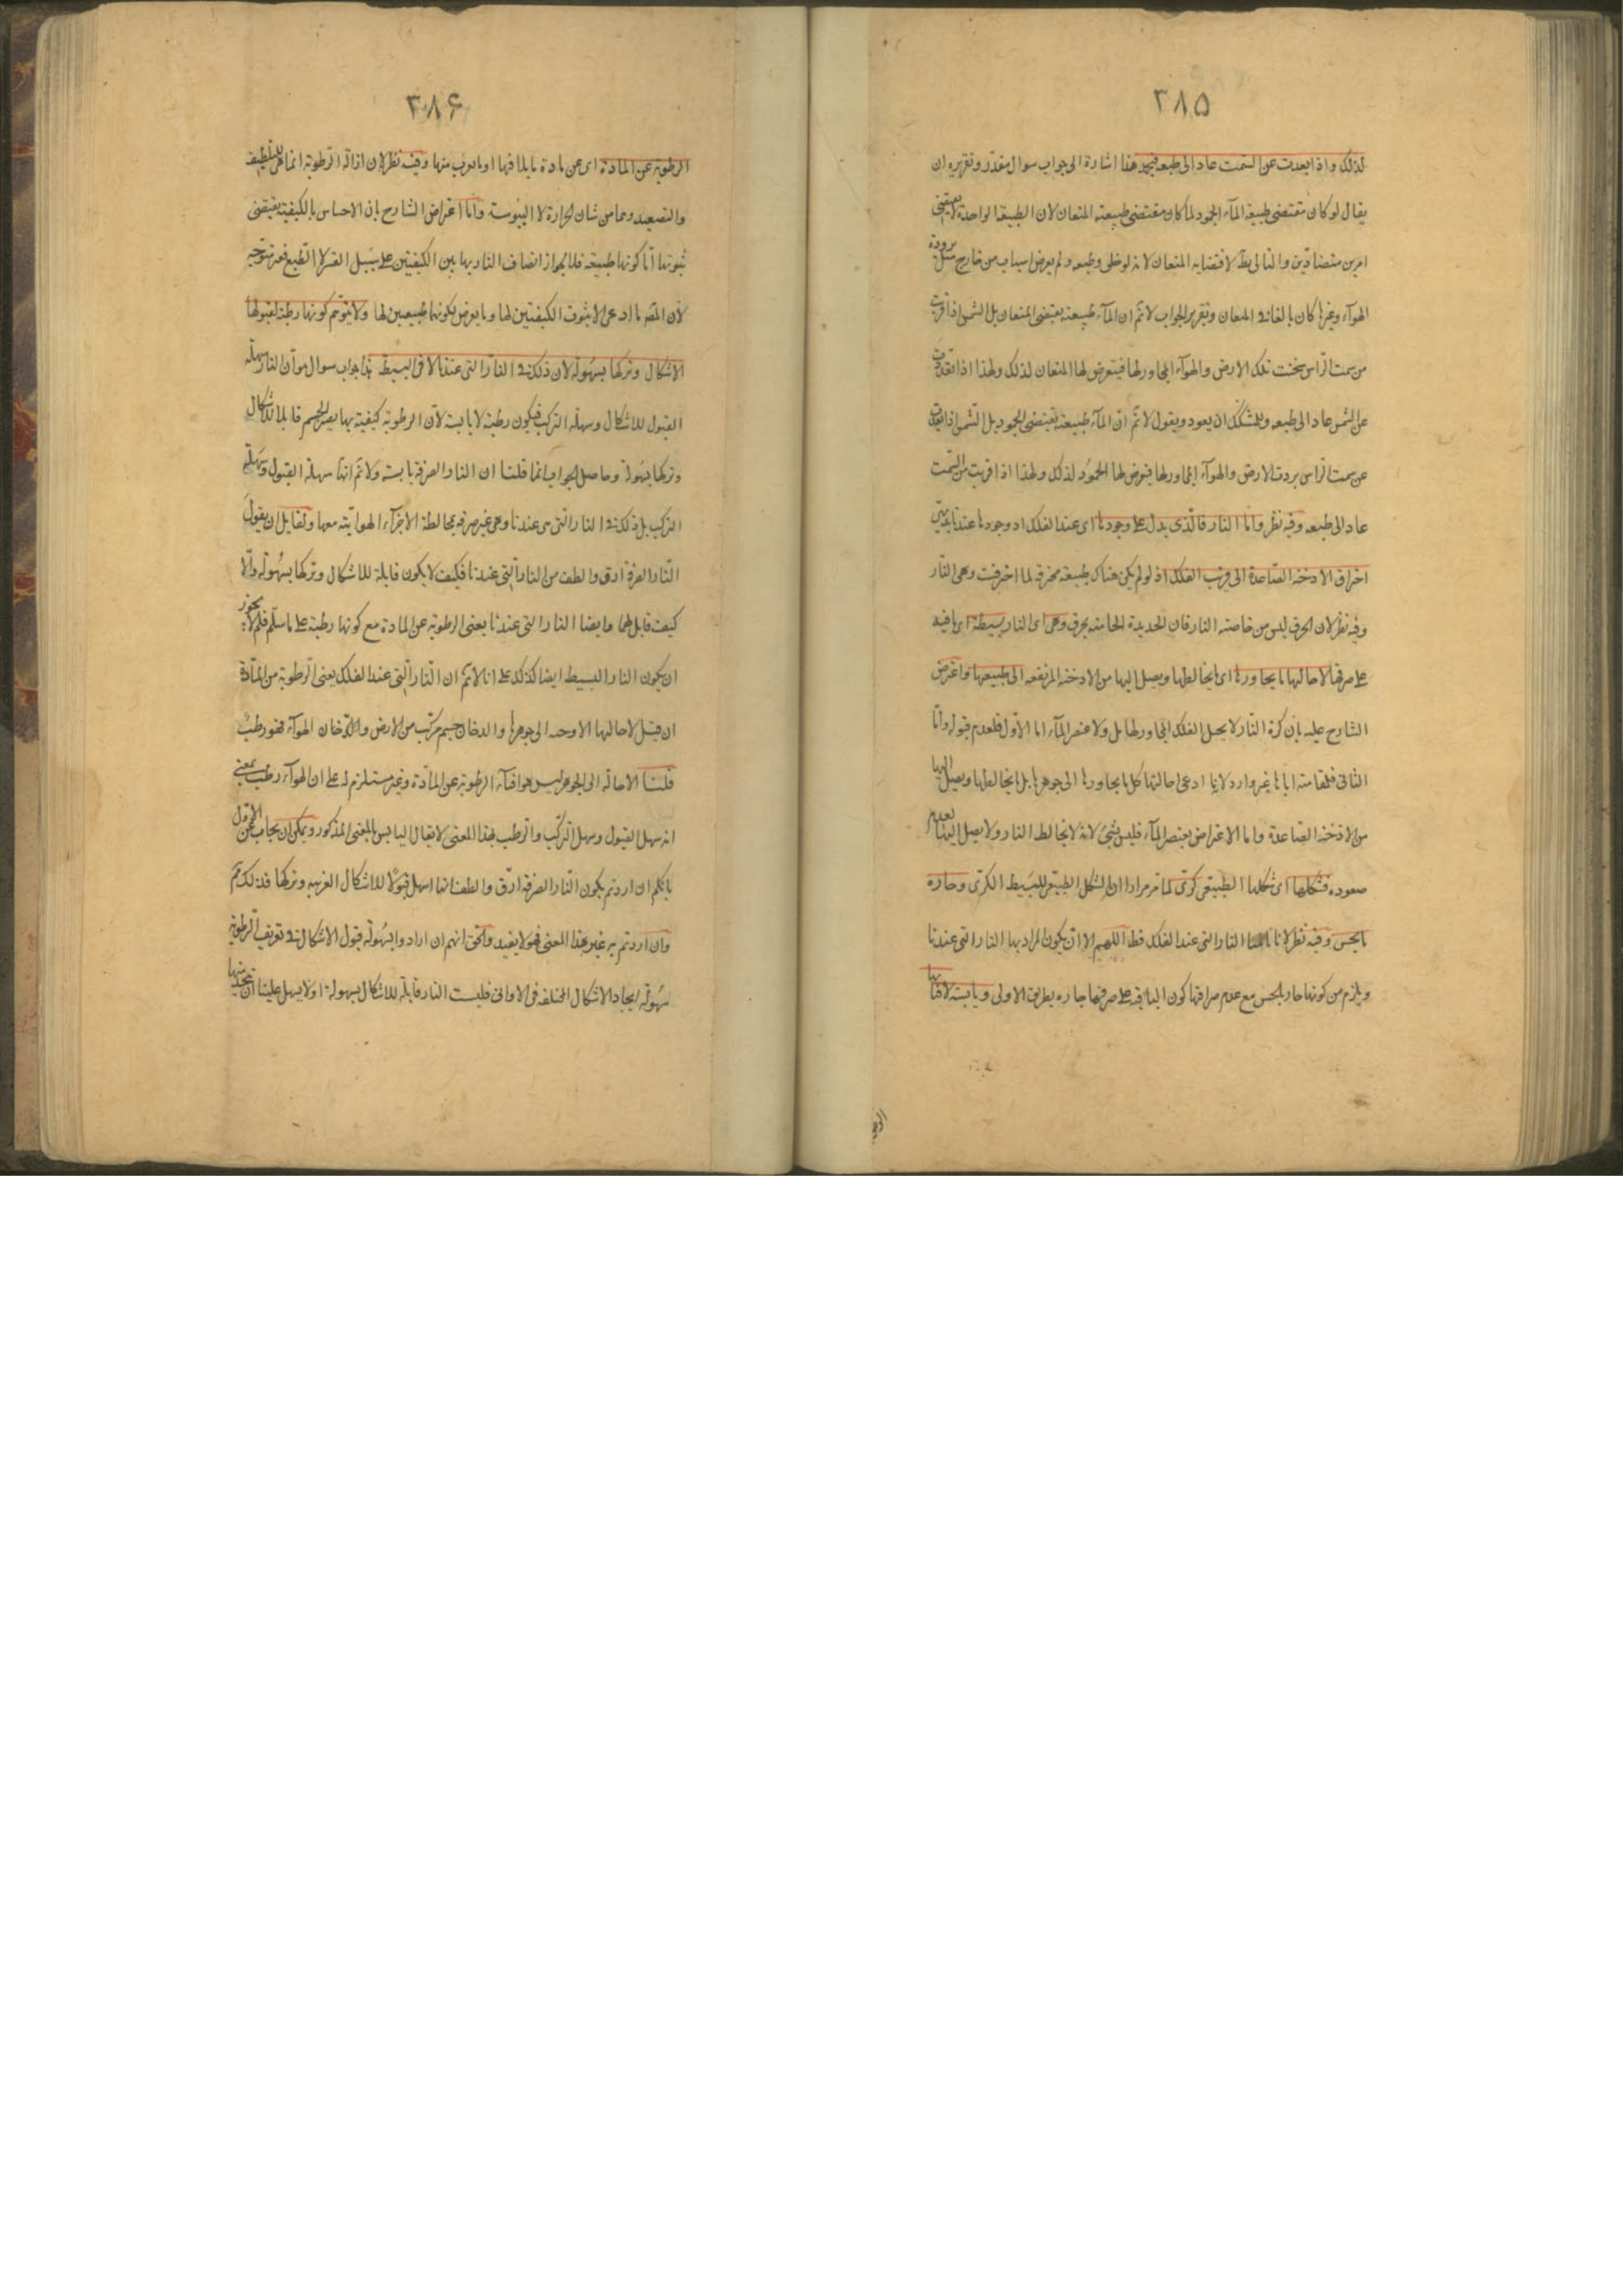 ٣٨٥
لذلك واذا بعدت عن السمت عاد الى طبعه فيجمد هذا اشارة الى جواب سوال مقدر وتقريره ان
يقال لو كان مقتضى طبيعة المآء الجمود لما كان مقتضى طبيعته الميعان لان الطبيعة الواحدة لا يقتضى
امرين متضادين والتالى بط لاقتضايه الميعان لانه لو خلى وطبعه ولم يعرض اسباب من خارج مثل برودة
الهوآء وغيرها كان بالغا فى الميعان وتقرير الجواب لا نم ان المآء طبيعته يقتضى الميعان بل الشمس اذا قربت
من سمت الرأس سخنت تلك الارض والهوآء المجاور لها فيتعرض لها الميعان لذلك ولهذا اذا بعدت
عن الشمس عاد الى طبعه وللمشكك ان يعود ويقول لا نم ان المآء طبيعته يقتضى الجمود بل الشمس اذا بعدت
عن سمت الرأس بردت الارض والهوآء المجاور لها فيعرض لها الجمود لذلك ولهذا اذا قربت من السمت
عاد الى طبعه وفيه نظر واما النار فالذى يدل على وجودها اى عند الفلك اذ وجودها عندنا بديهى
احراق الادخنة الصاعدة الى قرب الفلك اذ لو لم يكن هناك طبيعة محرقة لما احرقت وهى النار
وفيه نظر لان الحرق ليس من خاصته النار فان الحديدة الحامية يحرق وهى اى النار بسيطة اى باقية
على صرافتها لاحالتها ما يجاورها اى ما يخالطها ويصل اليها من الادخنة المرتفعه الى طبيعتها واعترض
الشارح عليه بان كرة النار لا يحيل الفلك المجاور لها بل ولا عنصر المآء اما الاول فلعدم قبوله واما
الثانى فلمقاومته اياها غير وارد لانه ما ادعى احالتها كل ما يجاورها الى جوهرها بل ما يخالطها ويصل اليها
من الادخنة الصاعدة واما الاعتراض بعنصر المآء فليس بشئ لانه لا يخالط النار ولا يصل اليها لعدم
صعوده فشكلها اى شكلها الطبيعى كرى لما مر مرارا ان الشكل الطبيعى للبسيط الكرى وحارة
بالحس وفيه نظر لانا النار التى عند الفلك قط اللهم الا ان يكون المراد بها النار التى عندنا
ويلزم من كونها حارة بالحس مع عدم صرافتها كون الباقية على صرافتها حارة بطريق الاولى ويابسة لافنائها
٣٨۶
الرطوبة عن المادة اى عن مادة ما يلاقيها او ما يقرب منها وفيه نظر لان ازالة الرطوبة انما هى بالتلطيف
والتصعيد وهما من شان الحرارة لا اليبوسة واما اعتراض الشارح بان الاحساس بالكيفية يقتضى
ثبوتها اما كونها طبيعية فلا لجواز اتصاف النار بهاتين الكيفيتين على سبيل القسر لا الطبع فغير متوجه
لأن المص ما ادعى الا ثبوت الكيفيتين لها وما يعرض لكونهما طبيعيين لها ولا يتوهم كونها رطبة لقبولها
الاشكال وتركها بسهولة لان ذلك فى النار التى عندنا لا فى البسيط هذا جواب سوال هو ان النار سهلة
القبول للاشكال وسهلة الترك فيكون رطبة لا يابسة لان الرطوبة كيفية بها يصير الجسم قابلا للاشكال
وتركها بسهولة وحاصل الجواب انما قلنا ان النار الصرفة يابسة ولا نم انها سهلة القبول وسهلة
الترك بل ذلك فى النار التى هى عندنا وهى غير صرفة لمخالطة الاجزآء الهوائية معها ولقايل ان يقول
النار الصرفة ارق والطف من النار التى عندنا فكيف لا يكون قابلة للاشكال وتركها بسهولة والا
كيف قابل لهما وايضا النار التى عندنا يفنى الرطوبة عن المادة مع كونها رطبة على ما سلم فلم لا يجوز
ان يكون النار البسيط ايضا كذلك على انا لا نم ان النار التى عند الفلك يفنى الرطوبة من المادة
ان قيل لاحالتها الادخنه الى جوهرها والدخان جسم مركب من الارض والهوآء فهو رطب
قلنا الاحالة الى الجوهر ليس هو افنآء الرطوبة عن المادة وغير مستلزم له على ان الهوآء رطب بمعنى
انه سهل القبول وسهل الترك والرطب بهذا المعنى لا يقال اليابس بالمعنى المذكور ويمكن ان يجاب عن الاول
بانكم ان اردتم بكون النار الصرفة ارق والطف انها اسهل قبولا للاشكال الغريبه وتركها فذلك نم
وان اردتم به غير هذا المعنى فهو لا يفيد والحق انهم ان ارادوا بسهولة قبول الاشكال فى تعريف الرطوبة
سهولة ايجاد الاشكال المختلفه فى الاوانى فليست النار قابلة للاشكال بسهولة اذ لا يسهل علينا ان نتخذ منها